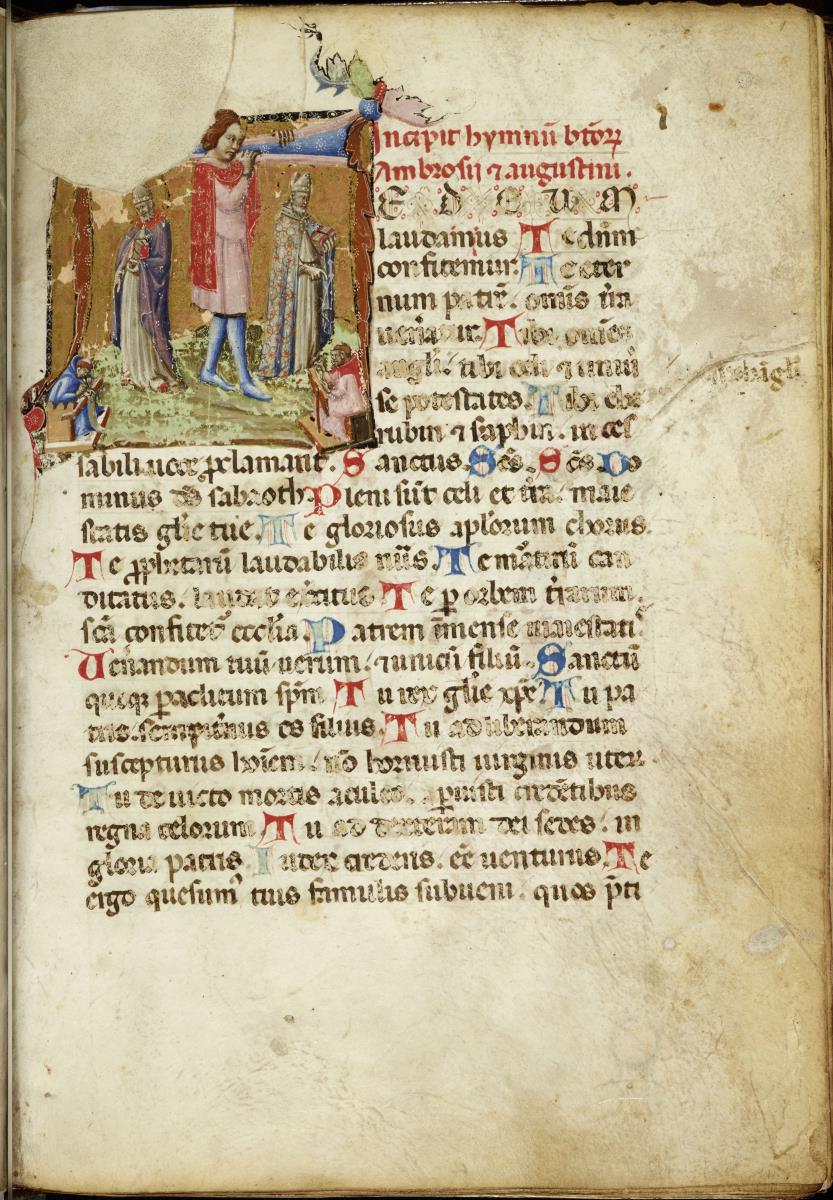 Incipit hymnū btōꝝ
Ambrosij ⁊ augustini.
E D E U M
laudamus Te dn̄m
confitemur. Te eter
num patrē. omīs t̄ra
ueneratur. Tibi omēs
angli. tibi celi ⁊ uniuū
se potestates. Tibi che
rubin ⁊ saphin. inces
sabili uoce ꝓclamant. Sanctus. Scs̄. Scs̄. Do
minus ds̄ sabaoth. Pleni sūt celi et t̄ra. maie
statis glīe tue. Te gloriosus aplōrum chorus.
Te ꝓphetarū laudabilis nūs. Te mātirū can
ditatus. laudat exercitus Te ꝑ orbem t̄rarum.
scā confitet ecclīa. Patrem īmense maiestati
Uenandum tuū uerum. ⁊ unicū filiū. Sanctū
quoqꝫ paclitum spm̄ Tu rex glīe xp̄e. Tu pa
tris. sempitnus es filius. Tu ad liberandum
suscepturus hoīem. nō horruisti uirginis uter
Tu deuicto mortis aculeo. aperuisti credētibus
regna celorum Tu ad dexteram dei sedes. in
gloria patris. Iudex crederis. eē uenturus. Te
ergo quesum tuis famulis subueni. quos p̄ti